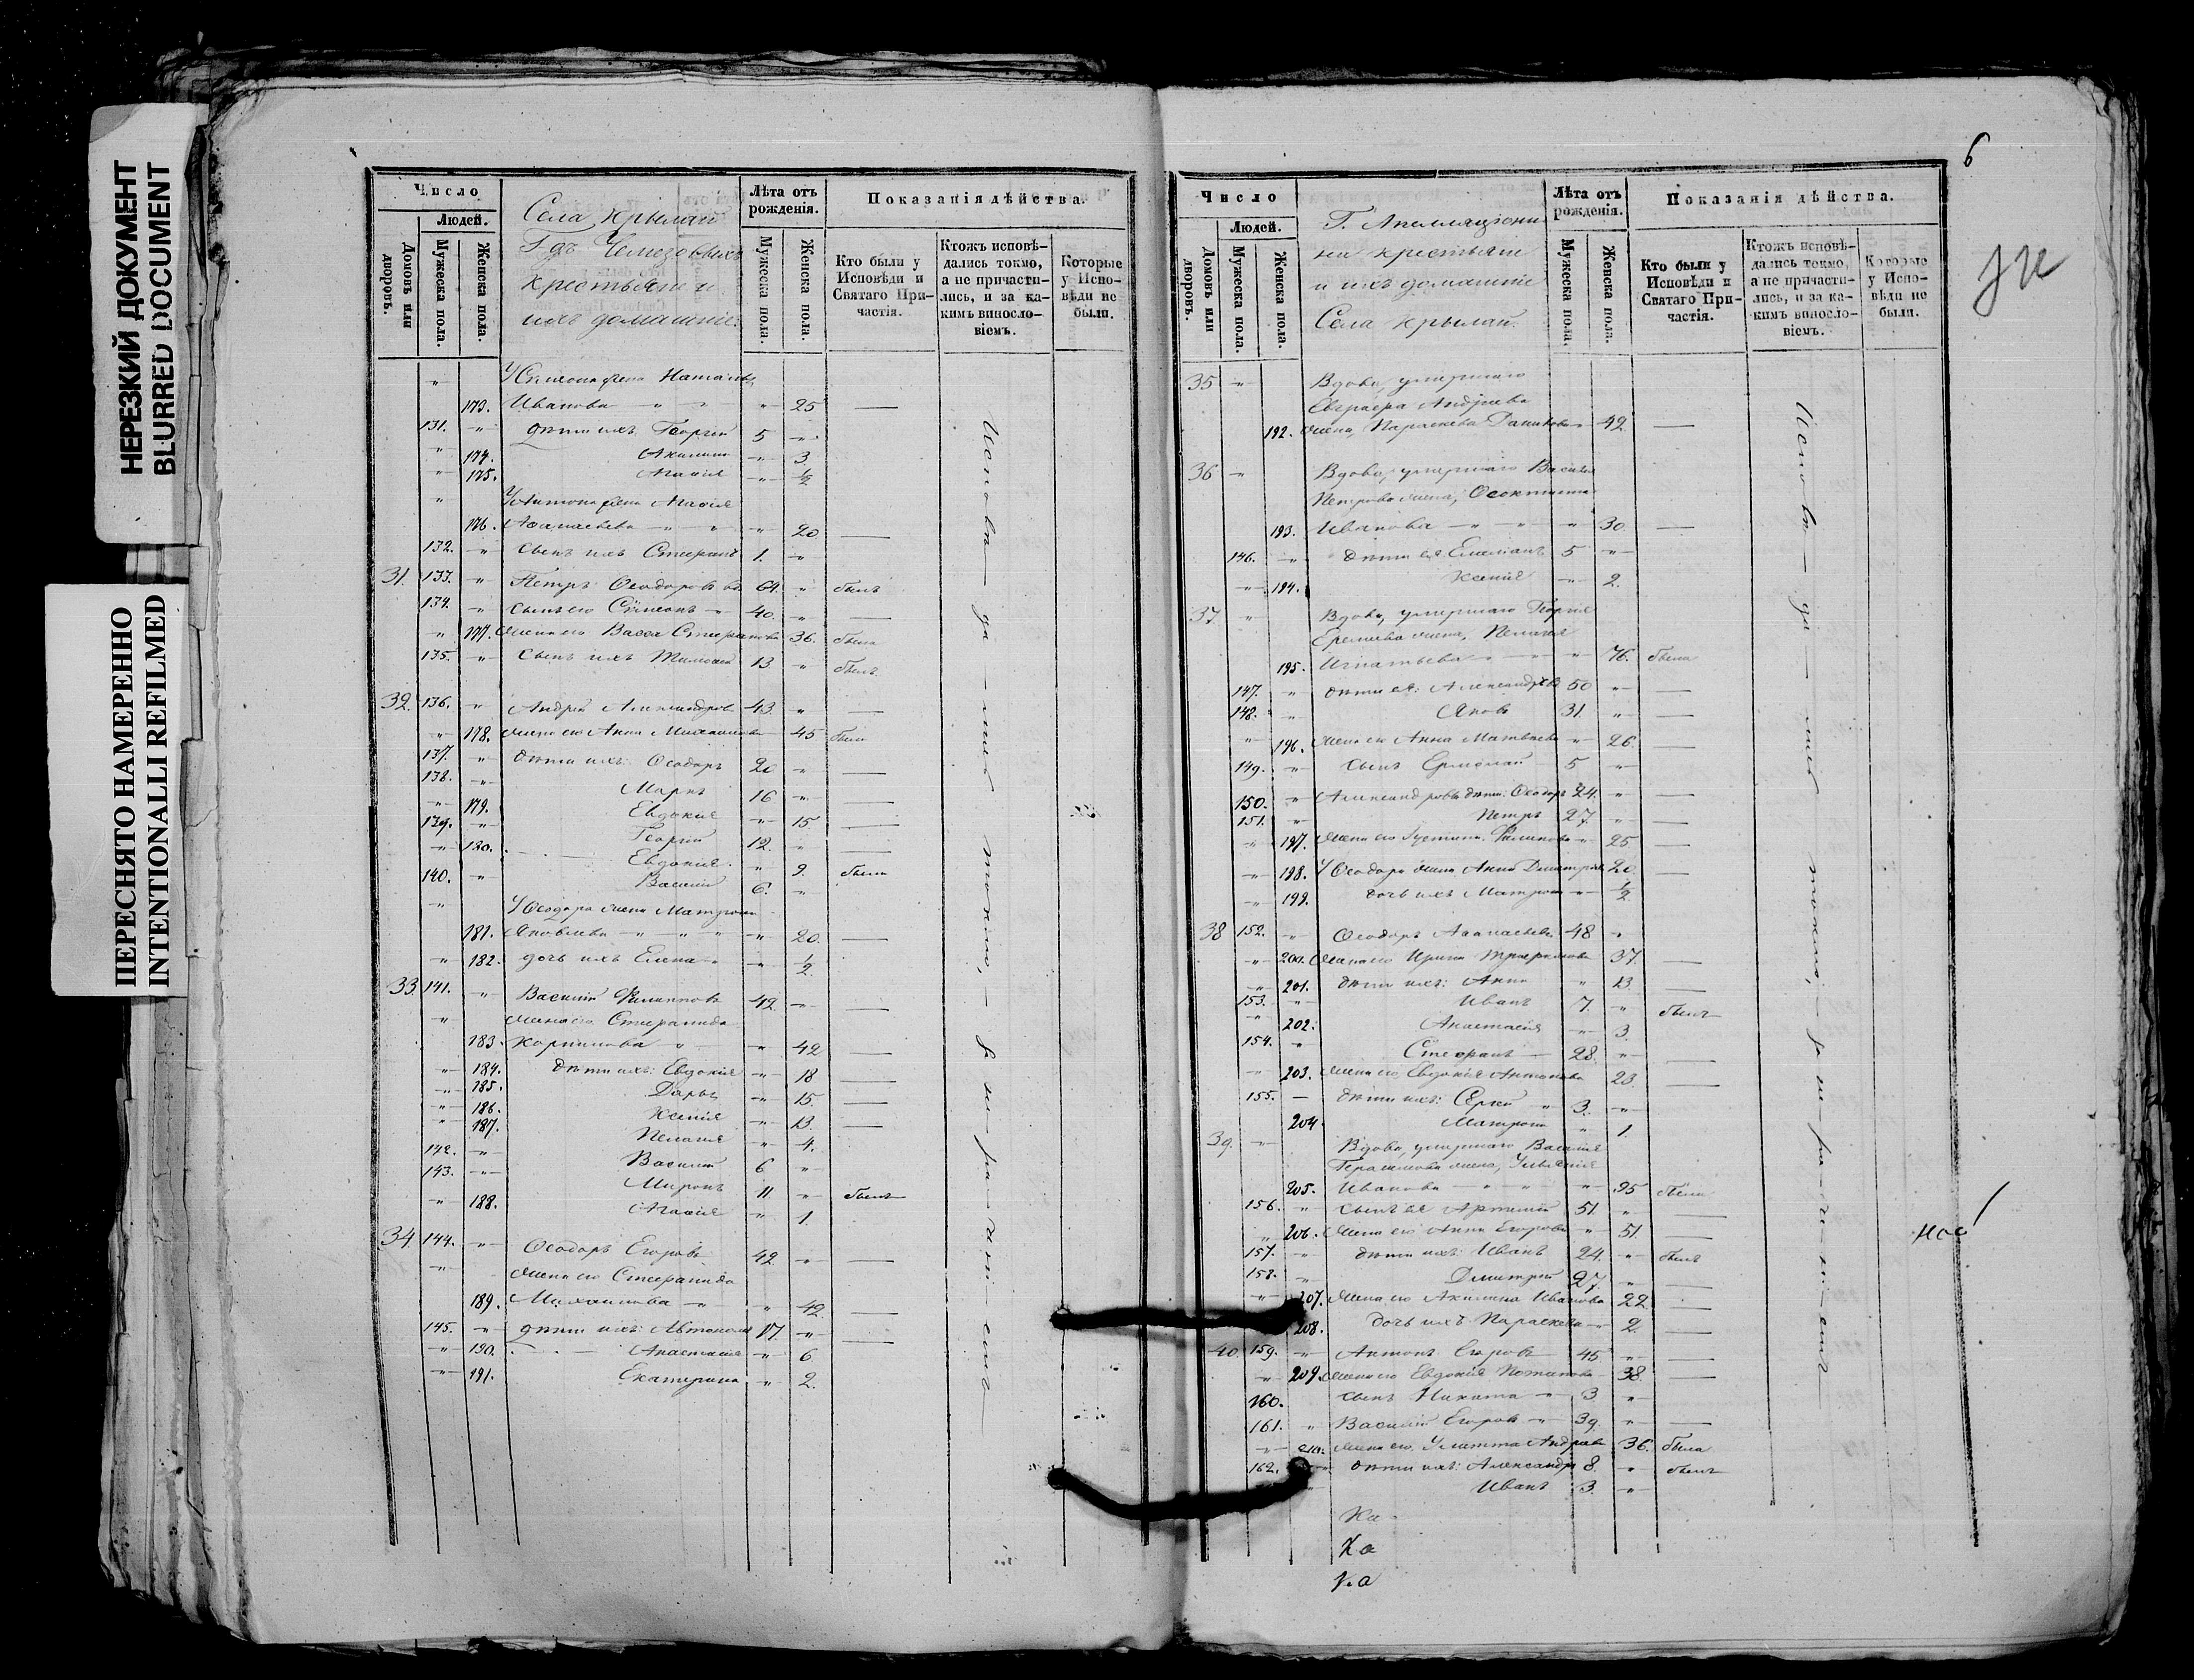 НЕРЕЗКИЙ ДОКУМЕНТ
BLURRED DOCUMENT
ПЕРЕСНЯТО НАМЕРЕННО
INTENTIONALLI REFILMED
Число
Людей.
Домовъ или дворовъ.
Мужеска пола.
Женска пола.
Села Крылай
Г дъ Чемезовыхъ
крестьяни и
ихъ домашніе.
Лѣта отъ рожденія.
Мужеска пола.
Женска пола.
Показанія дѣйства.
Кто были у Исповѣди и Святаго Причастія.
Ктожъ исповѣдались токмо, а не причастились, и за какимъ винословіемъ.
Которые у Исповѣди не были.
" У Симеона жена Наталья
173. Ивановна " " " 25 —
131. " дѣти ихъ Георгій 5 "
" 174. Акилина " 3
" 175. Агафія " 1/2
" У Антона жена Агафія
176. Афанасьева " " " 20 —
132. " сынъ ихъ Стефанъ 1. "
31. 133. " Петръ Ѳеодоровъ вд. 64. " былъ
134. " сынъ его Симеонъ " 40. " —
" 177. жена его Васса Стефанова 36. была
135. " сынъ ихъ Тимофей 13 " былъ
32. 136. " Андрей Александровъ 43. " —
" 178. жена его Анна Михайлова 45 была
137. " дѣти ихъ: Ѳеодоръ 20 " —
138. " Маркъ 16 " —
" 179. Евдокія " 15. —
139. " Георгій 12. " —
" 180. Евдокія " 9. была
140. " Василій 6. "
" У Ѳеодора жена Матрона
181. Яковлева " " " " 20. —
" 182. дочь ихъ Елена " " 1/2
33. 141. " Василій Филипповъ 42 " —
" жена его Стефанида
183. " " 42 —
" 184. дѣти ихъ: Евдокія " 18 —
" 185. Дарья " 15 —
" 186. Ксенія " 13. —
" 187. Пелагія " 4.
142. " Василій 6 "
143. " Миронъ 11. " былъ
" 188. Агафія " 1.
34. 144. " Ѳеодоръ Егоровъ 42 " —
" жена его Стефанида
189. Михайлова " " 42 —
145. " дѣти ихъ: Автономъ 17. " —
" 190. Анастасія " 6
" 191. Екатерина " 2.
Исповѣ— да — лись токмо, — За не — ра — чи — емъ —
6
Число
Людей.
Домовъ или дворовъ.
Мужеска пола.
Женска пола.
крестьяни
и ихъ домашніе
Села Крылай.
Лѣта отъ рожденія.
Мужеска пола.
Женска пола.
Показанія дѣйства.
Кто были у Исповѣди и Святаго Причастія.
Ктожъ исповѣдались токмо, а не причастились, и за какимъ винословіемъ.
Которые у Исповѣди не были.
35 " Вдова, умершаго
Андреева
192. жена, Параскева 42 —
36 " Вдова, умершаго Василія
Петрова жена,
193. Иванова " " " 30. —
146. " дѣти ея Емеліанъ 5 "
" 194. Ксенія " 2.
37 " Вдова, умершаго Георгія
Еремѣева жена, Пелагія
195. Игнатьева " " " 76. была
147. " дѣти ея: Александръ вд 50 " —
148. " Яковъ 31. " —
" 196. жена его Анна Матвѣева " 26. —
149. " сынъ Ермолай 5 "
150. " Александровы дѣти: Ѳеодоръ 24. " —
151. " Петръ 27. " —
" 197. жена его " 25 —
" 198. У Ѳеодора жена Анна Дмитріева 20. —
" 199. дочь ихъ Матрона " 1/2
38 152. " Ѳеодоръ Афанасьевъ 48 "
" 200. жена его Ирина Трофимова 37. —
" 201. дѣти ихъ: Анна " 13 —
153. " Иванъ 7. " былъ
" 202. Анастасія " 3.
154. " Стефанъ — 28. " —
" 203. жена его Евдокія Антонова 23. —
155. — дѣти ихъ: Сергій " 3. "
204 Матрона " 1.
39. " Вдова, умершаго Василія
Герасимова жена,
205. Иванова " " " 95 была
156. " сынъ ея Артемій 51. " —
" 206. жена его Анна Егорова " 51. —
157. " дѣти ихъ: Иванъ 24. " былъ
158. " Димитрій 27. " —
" 207. жена его Акилина Иванова 22. —
208. дочь ихъ Параскева " 2. —
40 159. " Антонъ Егоровъ 45 " —
" 209. жена его Евдокія Потапова 38. —
160. сынъ Никита " 3 "
161. " Василій Егоровъ " 39. " —
" 210. жена его, Улитта Андреева 36. была
162. дѣти ихъ: Александръ 8. " былъ
Иванъ 3. "
Ка
Ка
Ка
Исповѣ — да — лись токмо, — за не — ра — чи — ні — емъ